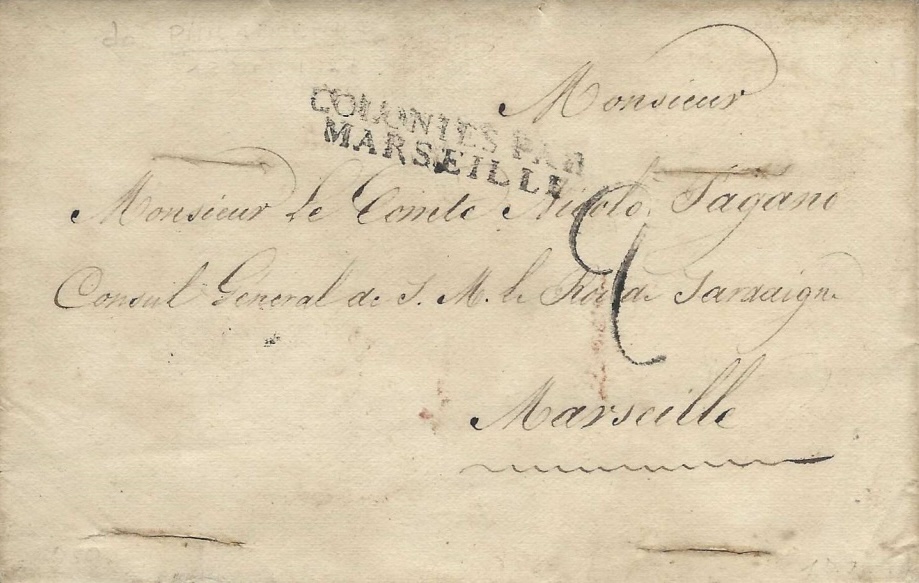 Monsieur
COLONIES PAR
MARSEILLE
Monsieur Le Comte Nicolo Pagano
Consul General de S. M. le Roi de Sardaigne
Marseille